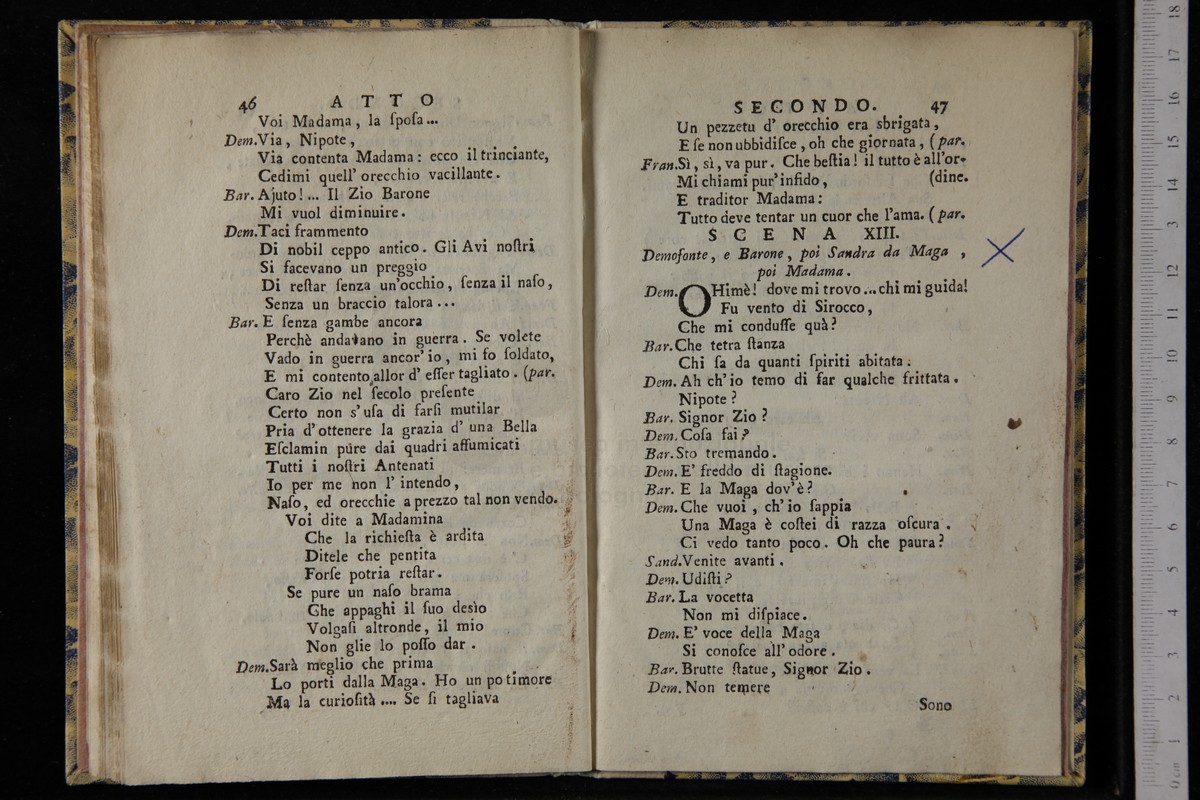 46 ATTO
Voi Madama, la ſpoſa...
Dem. Via, Nipote,
Via contenta Madama: ecco il trinciante,
Cedimi quell' orecchio vacillante.
Bar. Ajuto!... Il Zio Barone
Mi vuol diminuire.
Dem. Taci frammento
Di nobil ceppo antico. Gli Avi noſtri
Si facevano un preggio
Di reſtar ſenza un'occhio, ſenza il naſo,
Senza un braccio talora...
Bar. E ſenza gambe ancora
Perchè andavano in guerra. Se volete
Vado in guerra ancor' io, mi fo ſoldato,
E mi contento allor d' eſſer tagliato. (par.
Caro Zio nel ſecolo preſente
Certo non s' uſa di farſi mutilar
Pria d' ottenere la grazia d' una Bella
Eſclamin pure dai quadri affumicati
Tutti i noſtri Antenati
Io per me non l' intendo,
Naſo, ed orecchie a prezzo tal non vendo.
Voi dite a Madamina
Che la richieſta è ardita
Ditele che pentita
Forſe potria reſtar.
Se pure un naſo brama
Che appaghi il ſuo desìo
Volgaſi altronde, il mio
Non glie lo poſſo dar.
Dem. Sarà meglio che prima
Lo porti dalla Maga. Ho un po timore
Ma la curioſità.... Se ſi tagliava
SECONDO. 47
Un pezzetu d' orecchio era sbrigata,
E ſe non ubbidiſce, oh che giornata, (par.
Fran. Sì, sì, va pur. Che beſtia! il tutto è all'or-
Mi chiami pur' infido, (dine.
E traditor Madama:
Tutto deve tentar un cuor che l'ama. (par.
SCENA XIII.
Demofonte, e Barone, poi Sandra da Maga,
poi Madama.
Dem. OHimè! dove mi trovo... chi mi guida!
Fu vento di Sirocco,
Che mi conduſſe quà?
Bar. Che tetra ſtanza
Chi ſa da quanti ſpiriti abitata.
Dem. Ah ch' io temo di far qualche frittata.
Nipote?
Bar. Signor Zio?
Dem. Coſa fai?
Bar. Sto tremando.
Dem. E' freddo di ſtagione.
Bar. E la Maga dov'è?
Dem. Che vuoi, ch' io ſappia
Una Maga è coſtei di razza oſcura.
Ci vedo tanto poco. Oh che paura?
Sand. Venite avanti.
Dem. Udiſti?
Bar. La vocetta
Non mi diſpiace.
Dem. E' voce della Maga
Si conoſce all' odore.
Bar. Brutte ſtatue, Signor Zio.
Dem. Non temere
Sono